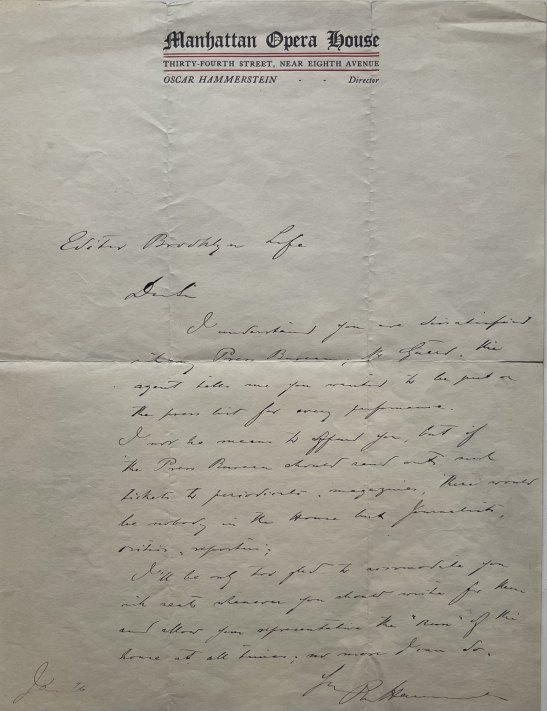 Manhattan Opera House
THIRTY-FOURTH STREET, NEAR EIGHTH AVENUE
OSCAR HAMMERSTEIN - - Director
Editor Brooklyn Life
Dear Sir
I understand you are dissatisfied
with my Press Bureau, Mr. the
agent tells me you wanted to be put on
the press list for every performance.
I nor he means to offend you, but if
the Press Bureau should send out such
tickets to periodicals, magazines, there would
be nobody in the House but Journalists,
critics, reporters;
I'll be only too gled to accomodate you
with seats whenever you should write for them
and allow your representative the "Run" of the
house at all times; no more I can do.